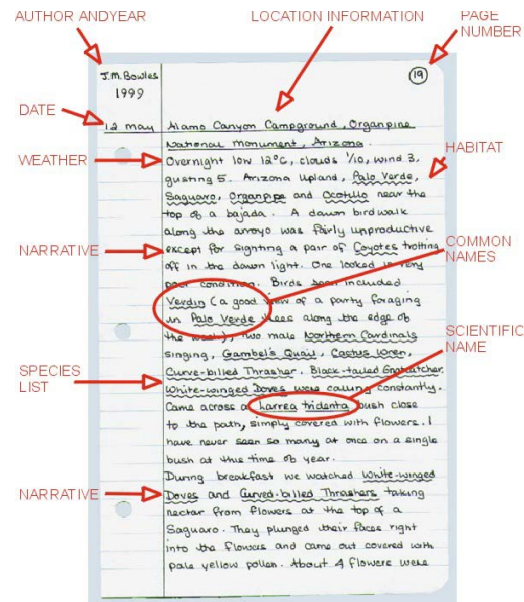 AUTHOR ANDYEAR
LOCATION INFORMATION
PAGE
NUMBER
J.M. Bowles
1999
19
DATE
12 May Alamo Canyon Campground, Organpipe
National Monument, Arizona.
WEATHER
Overnight low 12°C, clouds 1/10, wind 3,
HABITAT
gusting 5. Arizona Upland, Palo Verde,
Saguaro, Organpipe and Ocotillo near the
top of a bajada. A dawn birdwalk
along the arroyo was fairly unproductive
NARRATIVE
except for sighting a pair of Coyotes trotting
COMMON
NAMES
off in the dawn light. One looked in very
poor condition. Birds seen included
Verdin (a good view of a party foraging
in Palo Verde trees along the edge of
the wash), two male Northern Cardinals
SCIENTIFIC
NAME
singing, Gambel's Quail, Cactus Wren,
SPECIES
LIST
Curve-billed Thrasher. Black-tailed Gnatcatcher.
White-winged Doves were calling constantly.
Came across a Larrea tridenta bush close
to the path, simply covered with flowers. I
have never seen so many at once on a single
bush at this time of year.
During breakfast we watched White-winged
NARRATIVE
Doves and Curved-billed Thrashers taking
nectar from flowers at the top of a
Saguaro. They plunged their faces right
into the flowers and came out covered with
pale yellow pollen. About 4 flowers were